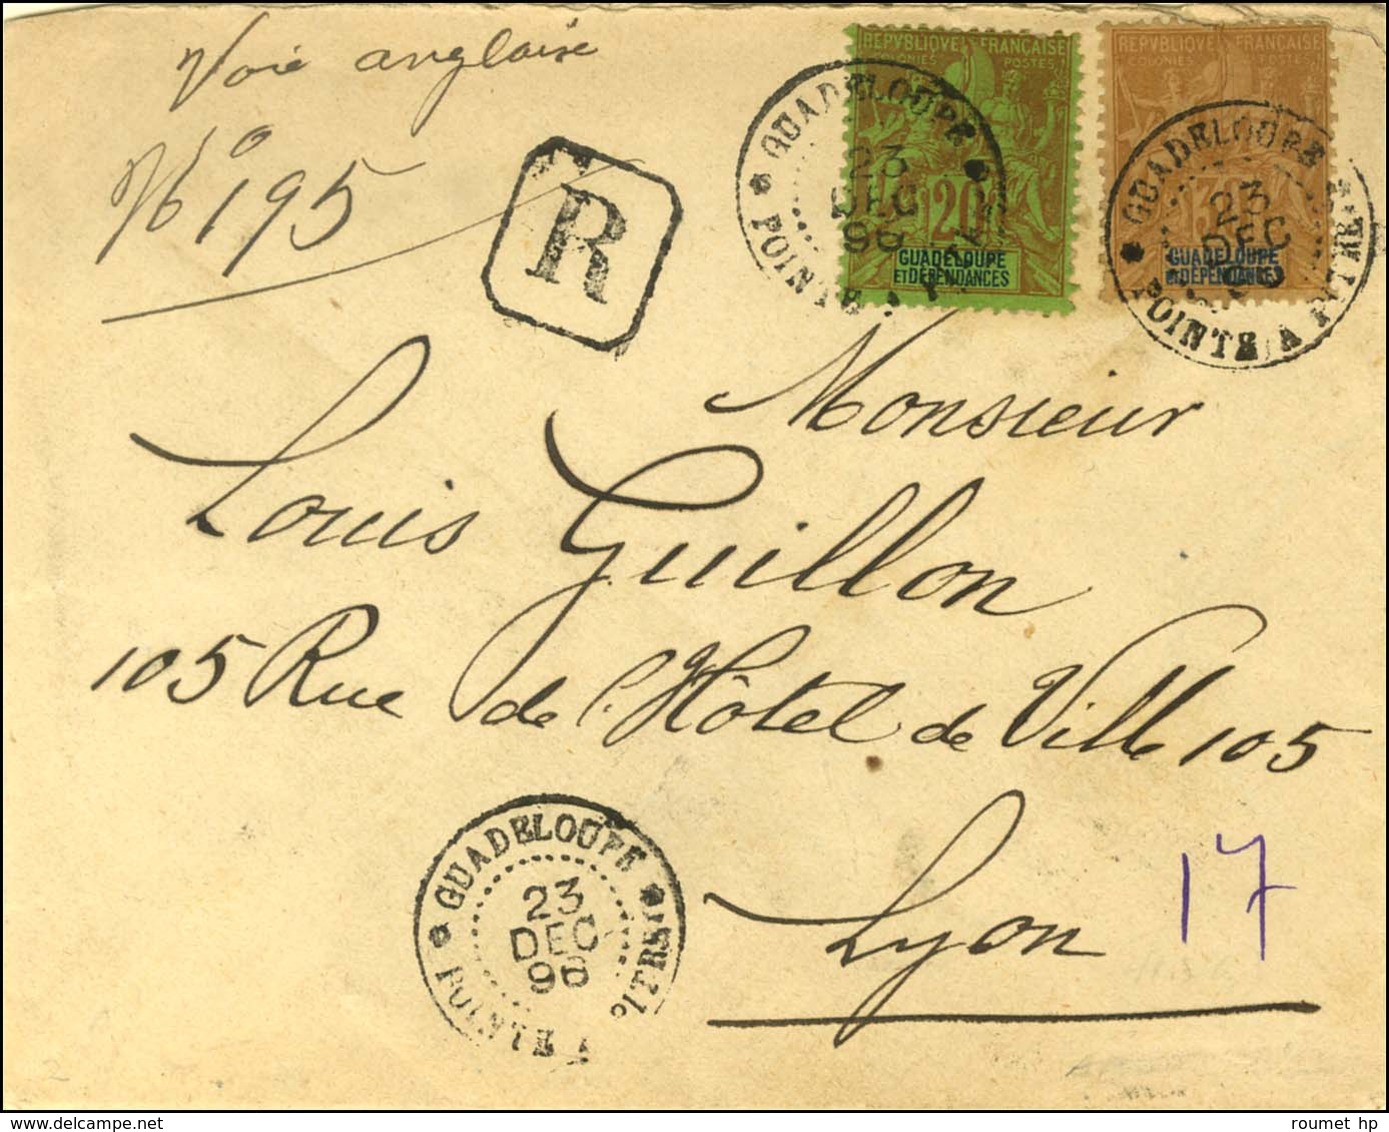 Voie anglaise
No 195
R
REPVBLIQUE FRANÇAISE
COLONIES POSTES
20
GUADELOUPE
ET DÉPENDANCES
REPVBLIQUE FRANÇAISE
COLONIES POSTES
30
GUADELOUPE
ET DÉPENDANCES
GUADELOUPE
23
DEC
96
POINTE A
GUADELOUPE
23
DEC
POINTE A PITRE
Monsieur
Louis Guillon
105 Rue de l'Hôtel de Ville 105
Lyon
17
GUADELOUPE
23
DEC
96
POINTE A PITRE
roumet hp